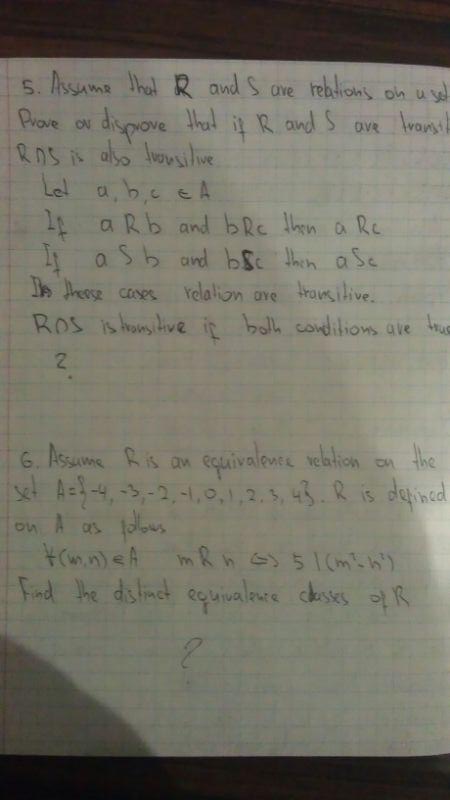 5. Assume that R and S are relations on a set
Prove or disprove that if R and S are transit
R∩S is also transitive
Let a, b, c ∈ A
If a R b and b R c then a R c
If a S b and b S c then a S c
In theese cases relation are transitive.
R∩S is transitive if both conditions are true
?
6. Assume R is an equivalence relation on the
set A={-4, -3, -2, -1, 0, 1, 2, 3, 4}. R is defined
on A as follows
∀(m,n) ∈ A m R n ⇔ 5 | (m²-n²)
Find the distinct equivalence classes of R
?